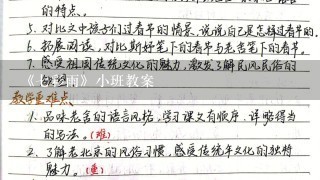 的特点。
5. 对比文中孩子们过春节的情景,说说自己是怎样过春节的。
6. 拓展阅读,对比斯妤笔下的春节与老舍笔下的春节。
7. 感受祖国传统文化的魅力,激发了解民风民俗的
《春雨》小班教案
教学重难点
1. 品味老舍的语言风格,学习课文有顺序、详略得当
的写法。(难)
2. 了解老北京的风俗习惯,感受传统年文化的独特
魅力。(重)